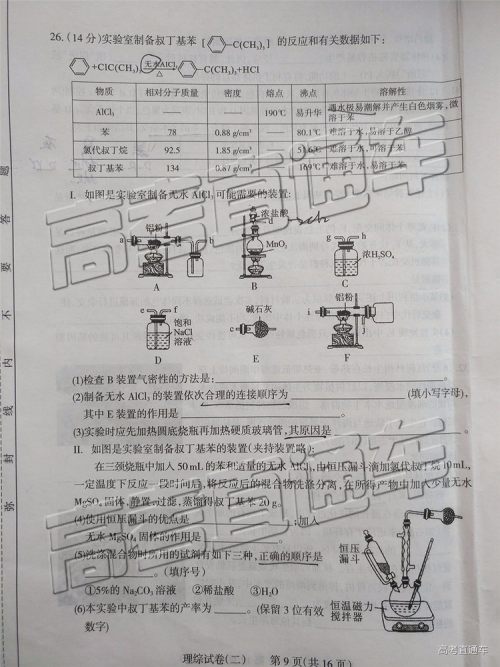 26.(14分)实验室制备叔丁基苯[ —C(CH₃)₃]的反应和有关数据如下:
+ClC(CH₃)₃ 无水AlCl₃ △ —C(CH₃)₃+HCl
物质 相对分子质量 密度 熔点 沸点 溶解性
AlCl₃ —— —— 190℃ 易升华 遇水极易潮解并产生白色烟雾,微溶于苯
苯 78 0.88 g/cm³ —— 80.1℃ 难溶于水,易溶于乙醇
氯代叔丁烷 92.5 1.85 g/cm³ —— 51.6℃ 难溶于水,可溶于苯
叔丁基苯 134 0.87 g/cm³ —— 169℃ 难溶于水,易溶于苯
Ⅰ. 如图是实验室制备无水 AlCl₃ 可能需要的装置:
铝粉 a b A
浓盐酸 MnO₂ B
g h 浓H₂SO₄ C
e f 饱和NaCl溶液 D
c 碱石灰 E
铝粉 i j F
(1)检查B装置气密性的方法是: 。
(2)制备无水 AlCl₃ 的装置依次合理的连接顺序为 (填小写字母),
其中E装置的作用是 。
(3)实验时应先加热圆底烧瓶再加热硬质玻璃管,其原因是 。
Ⅱ. 如图是实验室制备叔丁基苯的装置(夹持装置略):
在三颈烧瓶中加入 50 mL 的苯和适量的无水 AlCl₃,由恒压漏斗滴加氯代叔丁烷 10 mL,
一定温度下反应一段时间后,将反应后的混合物洗涤分离,在所得产物中加入少量无水
MgSO₄ 固体,静置,过滤,蒸馏得叔丁基苯 20 g。
(4)使用恒压漏斗的优点是 ;加入
无水 MgSO₄ 固体的作用是 。
(5)洗涤混合物时所用的试剂有如下三种,正确的顺序是
。(填序号)
①5%的 Na₂CO₃ 溶液 ②稀盐酸 ③H₂O
(6)本实验中叔丁基苯的产率为 。(保留 3 位有效
数字)
恒压
漏斗
恒温磁力
搅拌器
理综试卷(二) 第 9 页(共 16 页)
题 答 要 不 内 线 封 弥
高考直通车
高考直通车
高考直通车